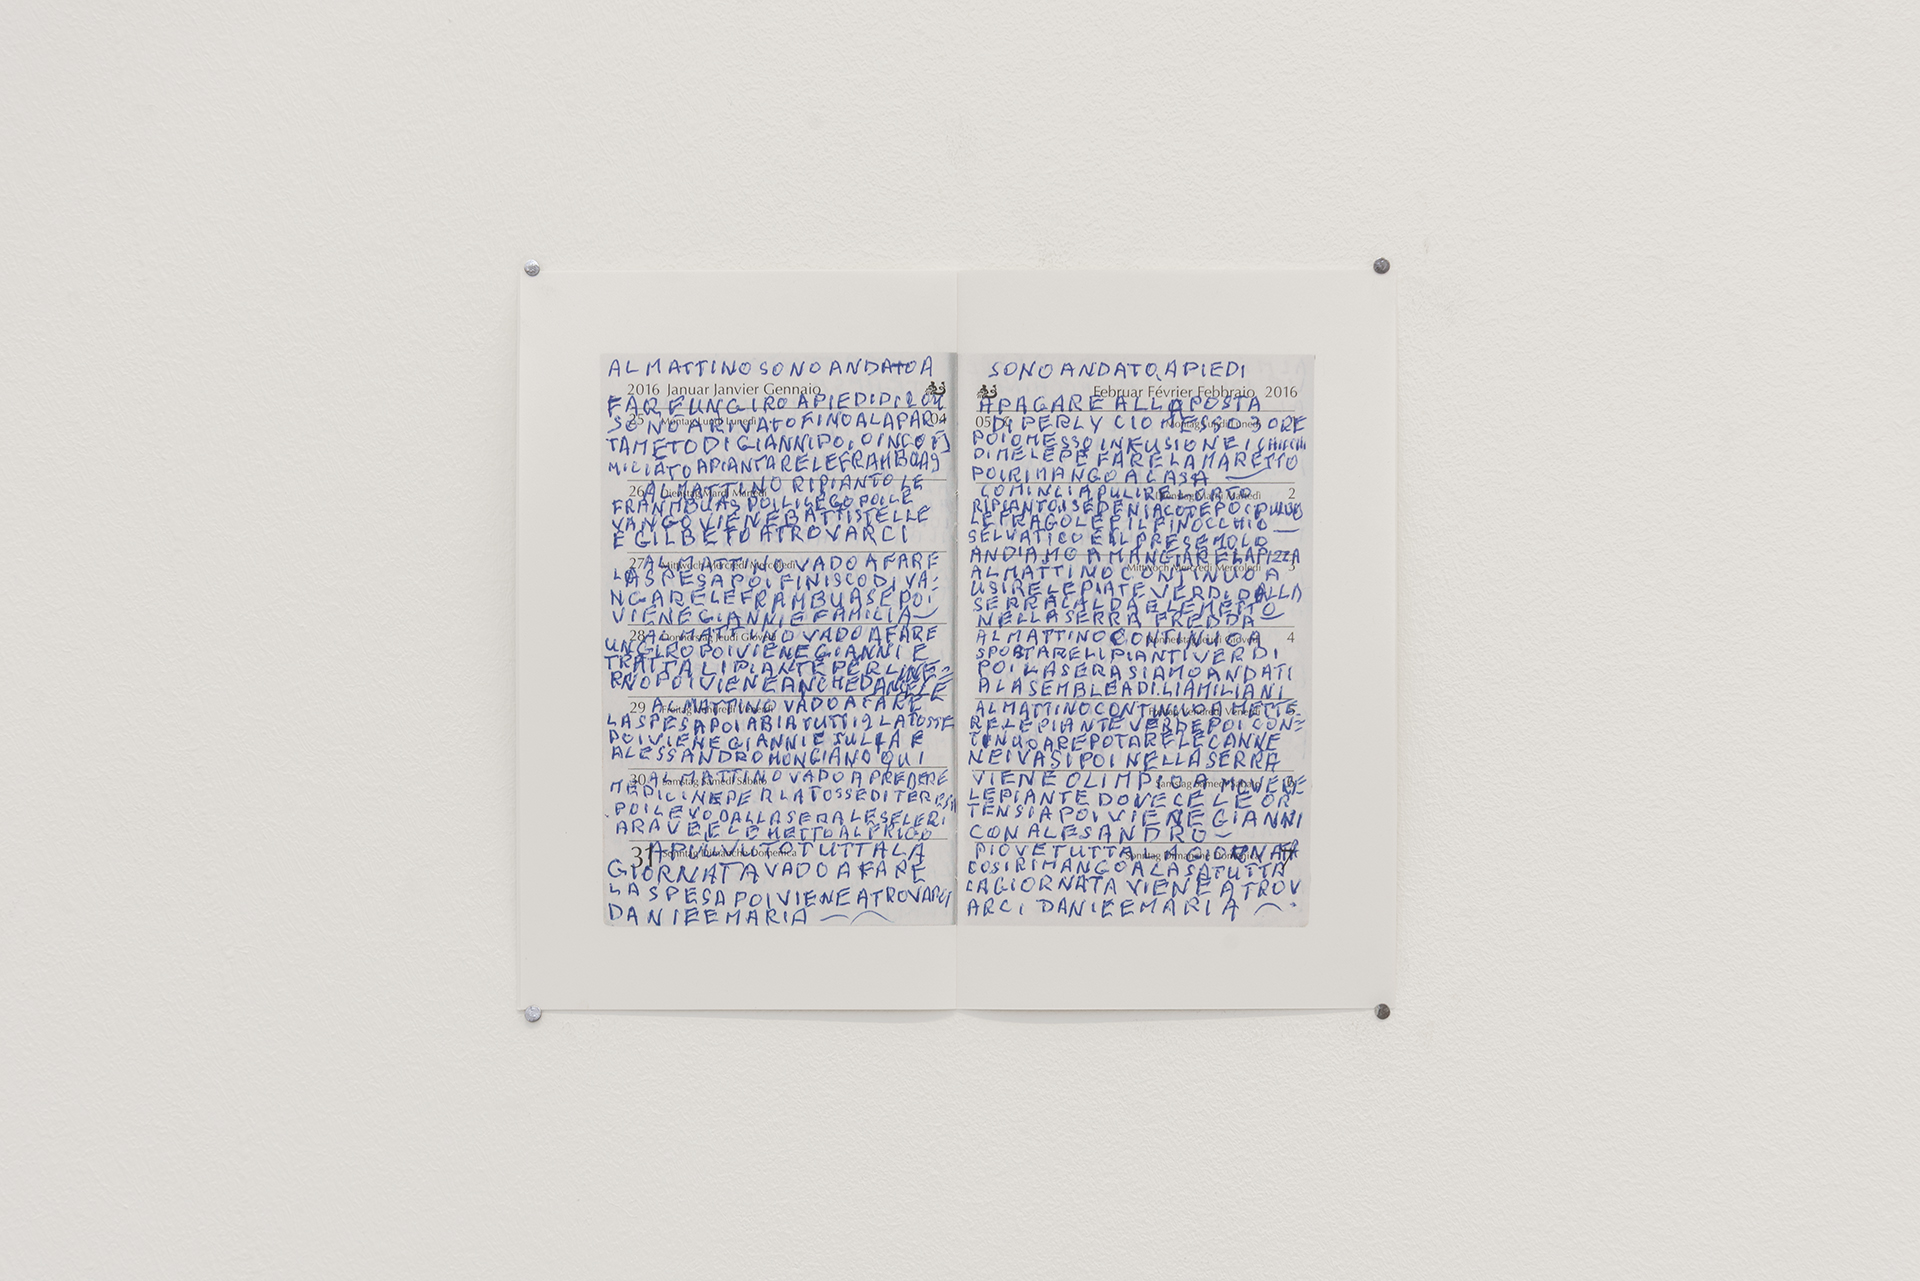 ALMATTINOSONOANDATOA
2016 Januar Janvier Gennaio
FAREUNGIROAPIEDIDI
25 Montag Lundi Lunedì 04
SONOARIVATOFINOALAPAR
TAMETODIGIANNIPOIOINCO
MILIATOAPIANTARELEFRAMBUAS
26 Dienstag Mardi Martedì
ALMATTINO RIPIANTO LE
FRAMBUASPOILILEGOPOILE
VANGOVIENEBATTISTELLE
E GILBETOATROVARCI
27 Mittwoch Mercredi Mercoledì
ALMATTINOVADOAFARE
LASPESAPOIFINISCODIVA:
NGARELEFRAMBUASEPOI
VIENEGIANNIEFAMILIA
28 Donnerstag Jeudi Giovedì
ALMATTINOVADOAFARE
UNGIROPOIVIENEGIANNIE
TRATTALIPIANTEPERLINVE=
RNOPOIVIENEANCHEDANIELE
29 Freitag Vendredi Venerdì
ALMATTINOVADOAFARE
LASPESAPOIABIATUTTI2LATOSSE
POIVIENEGIANNIE E
ALESSANDROMONGIANOQUI
30 Samstag Samedi Sabato
ALMATTINOVADOAPREDERE
MEDICINEPERLATOSSEDITERESA
POILEVODALLASERALESELERI
ARAVEELEMETTOALFRIGO
31 Sonntag Dimanche Domenica
APIUVUTOTUTTALA
GIORNATAVADOAFARE
LASPESAPOIVIENEATROVARCI
DANIEEMARIA
SONOANDATOAPIEDI
Februar Février Febbraio 2016
APAGAREALLAPOSTA
05 Montag Lundi Lunedì
DIPERLYCIOMESSO3ORE
POIOMESSOINFUSIONEI
DIMELEPEFARELAMARETTO
POIRIMANGOACASA
Dienstag Mardi Martedì 2
COMINCIAPULIREORTO
RIPIANTOISEDENIACOTEPOI
LEFRAGOLEEILFINOCCHIO
SELVATICOEILPRESEMOLO
ANDIAMOAMANGIARELAPIZZA
Mittwoch Mercredi Mercoledì 3
ALMATTINOCONTINUOA
USIRELEPIATEVERDIDALLA
SERRACALDAELEMETTO
NELLASERRAFREDDA
Donnerstag Jeudi Giovedì 4
ALMATTINOCONTINUOA
SPOSTARELIPIANTIVERDI
POILASERASIAMOANDATI
ALASEMBLEADILIAMILIANI
Freitag Vendredi Venerdì
ALMATTINOCONTINUOAMETTE
RELEPIANTEVERDEPOICON=
TINUOAREPOTARELECANNE
NEIVASIPOINELLASERRA
Samstag Samedi Sabato
VIENEOLIMPIOAMOVERE
LEPIANTEDOVECELEOR
TENSIAPOIVIENEGIANNI
CONALESANDRO
Sonntag Dimanche Domenica
PIOVETUTTALAGORNATA
COSIRIMANGOALASATUTTA
LAGIORNATAVIENEATROV
ARCIDANIEEMARIA